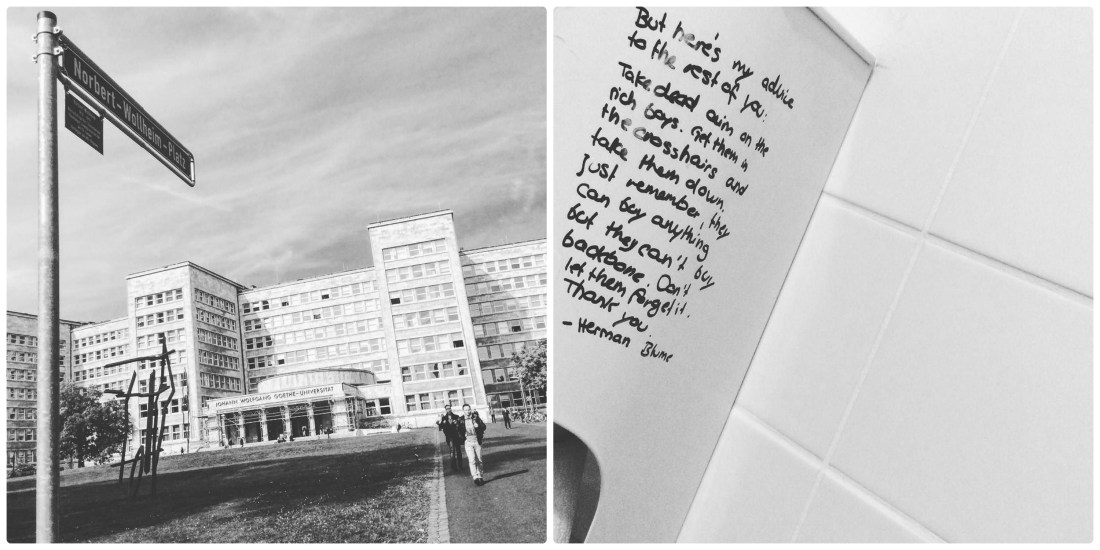 Norbert-Wollheim-Platz
JOHANN WOLFGANG GOETHE-UNIVERSITÄT
But here's my advice
to the rest of you:
Take dead aim on the
rich boys. Get them in
the crosshairs and
take them down.
Just remember, they
can buy anything
but they can't buy
backbone. Don't
let them forget it.
Thank you.
- Herman Blume